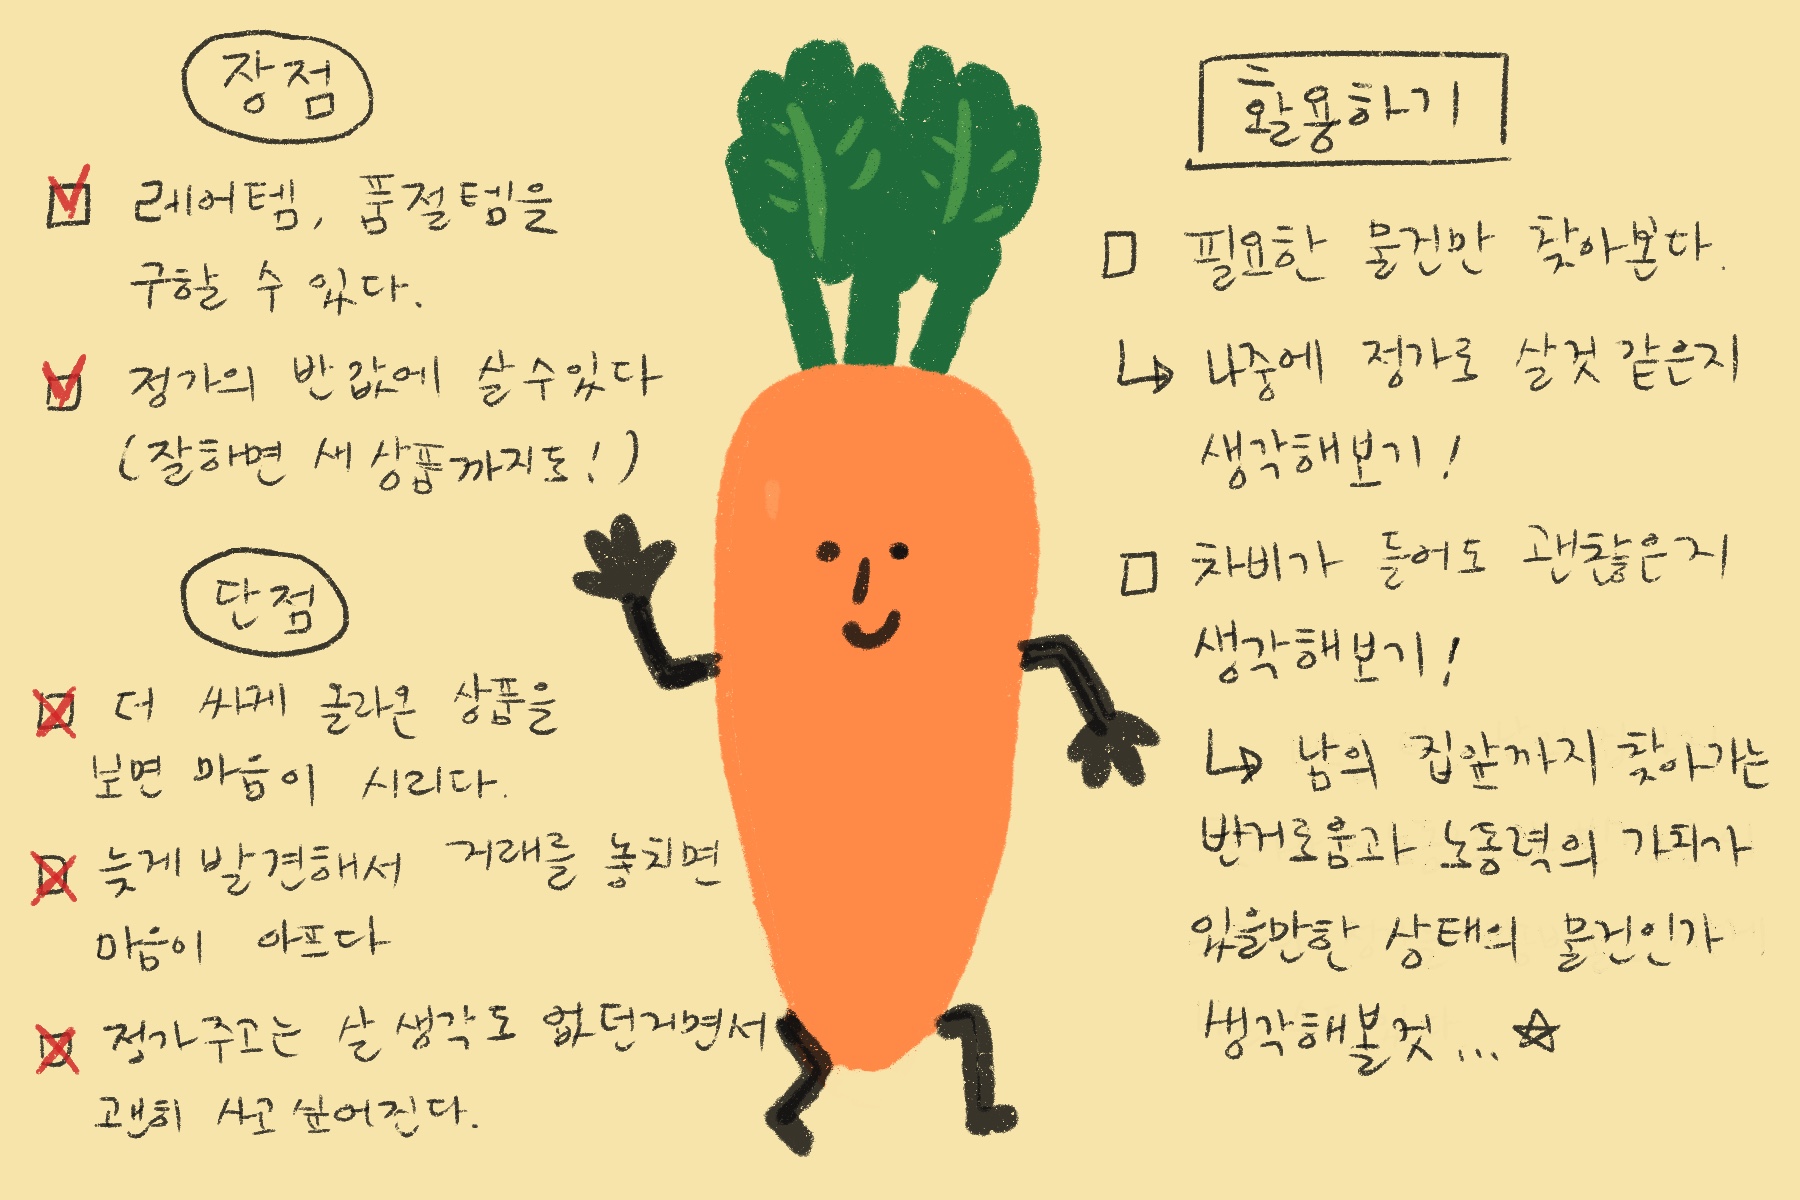 장점
레어템, 품절템을
구할 수 있다.
정가의 반값에 살수있다
(잘하면 새상품까지도!)
단점
더 싸게 올라온 상품을
보면 마음이 시리다.
늦게 발견해서 거래를 놓치면
마음이 아프다
정가주고는 살 생각도 없던거면서
괜히 사고싶어진다.
활용하기
필요한 물건만 찾아본다.
↳ 나중에 정가로 살것 같은지
생각해보기!
차비가 들어도 괜찮은지
생각해보기!
↳ 남의 집앞까지 찾아가는
번거로움과 노동력의 가치가
있을만한 상태의 물건인가
생각해볼것...☆